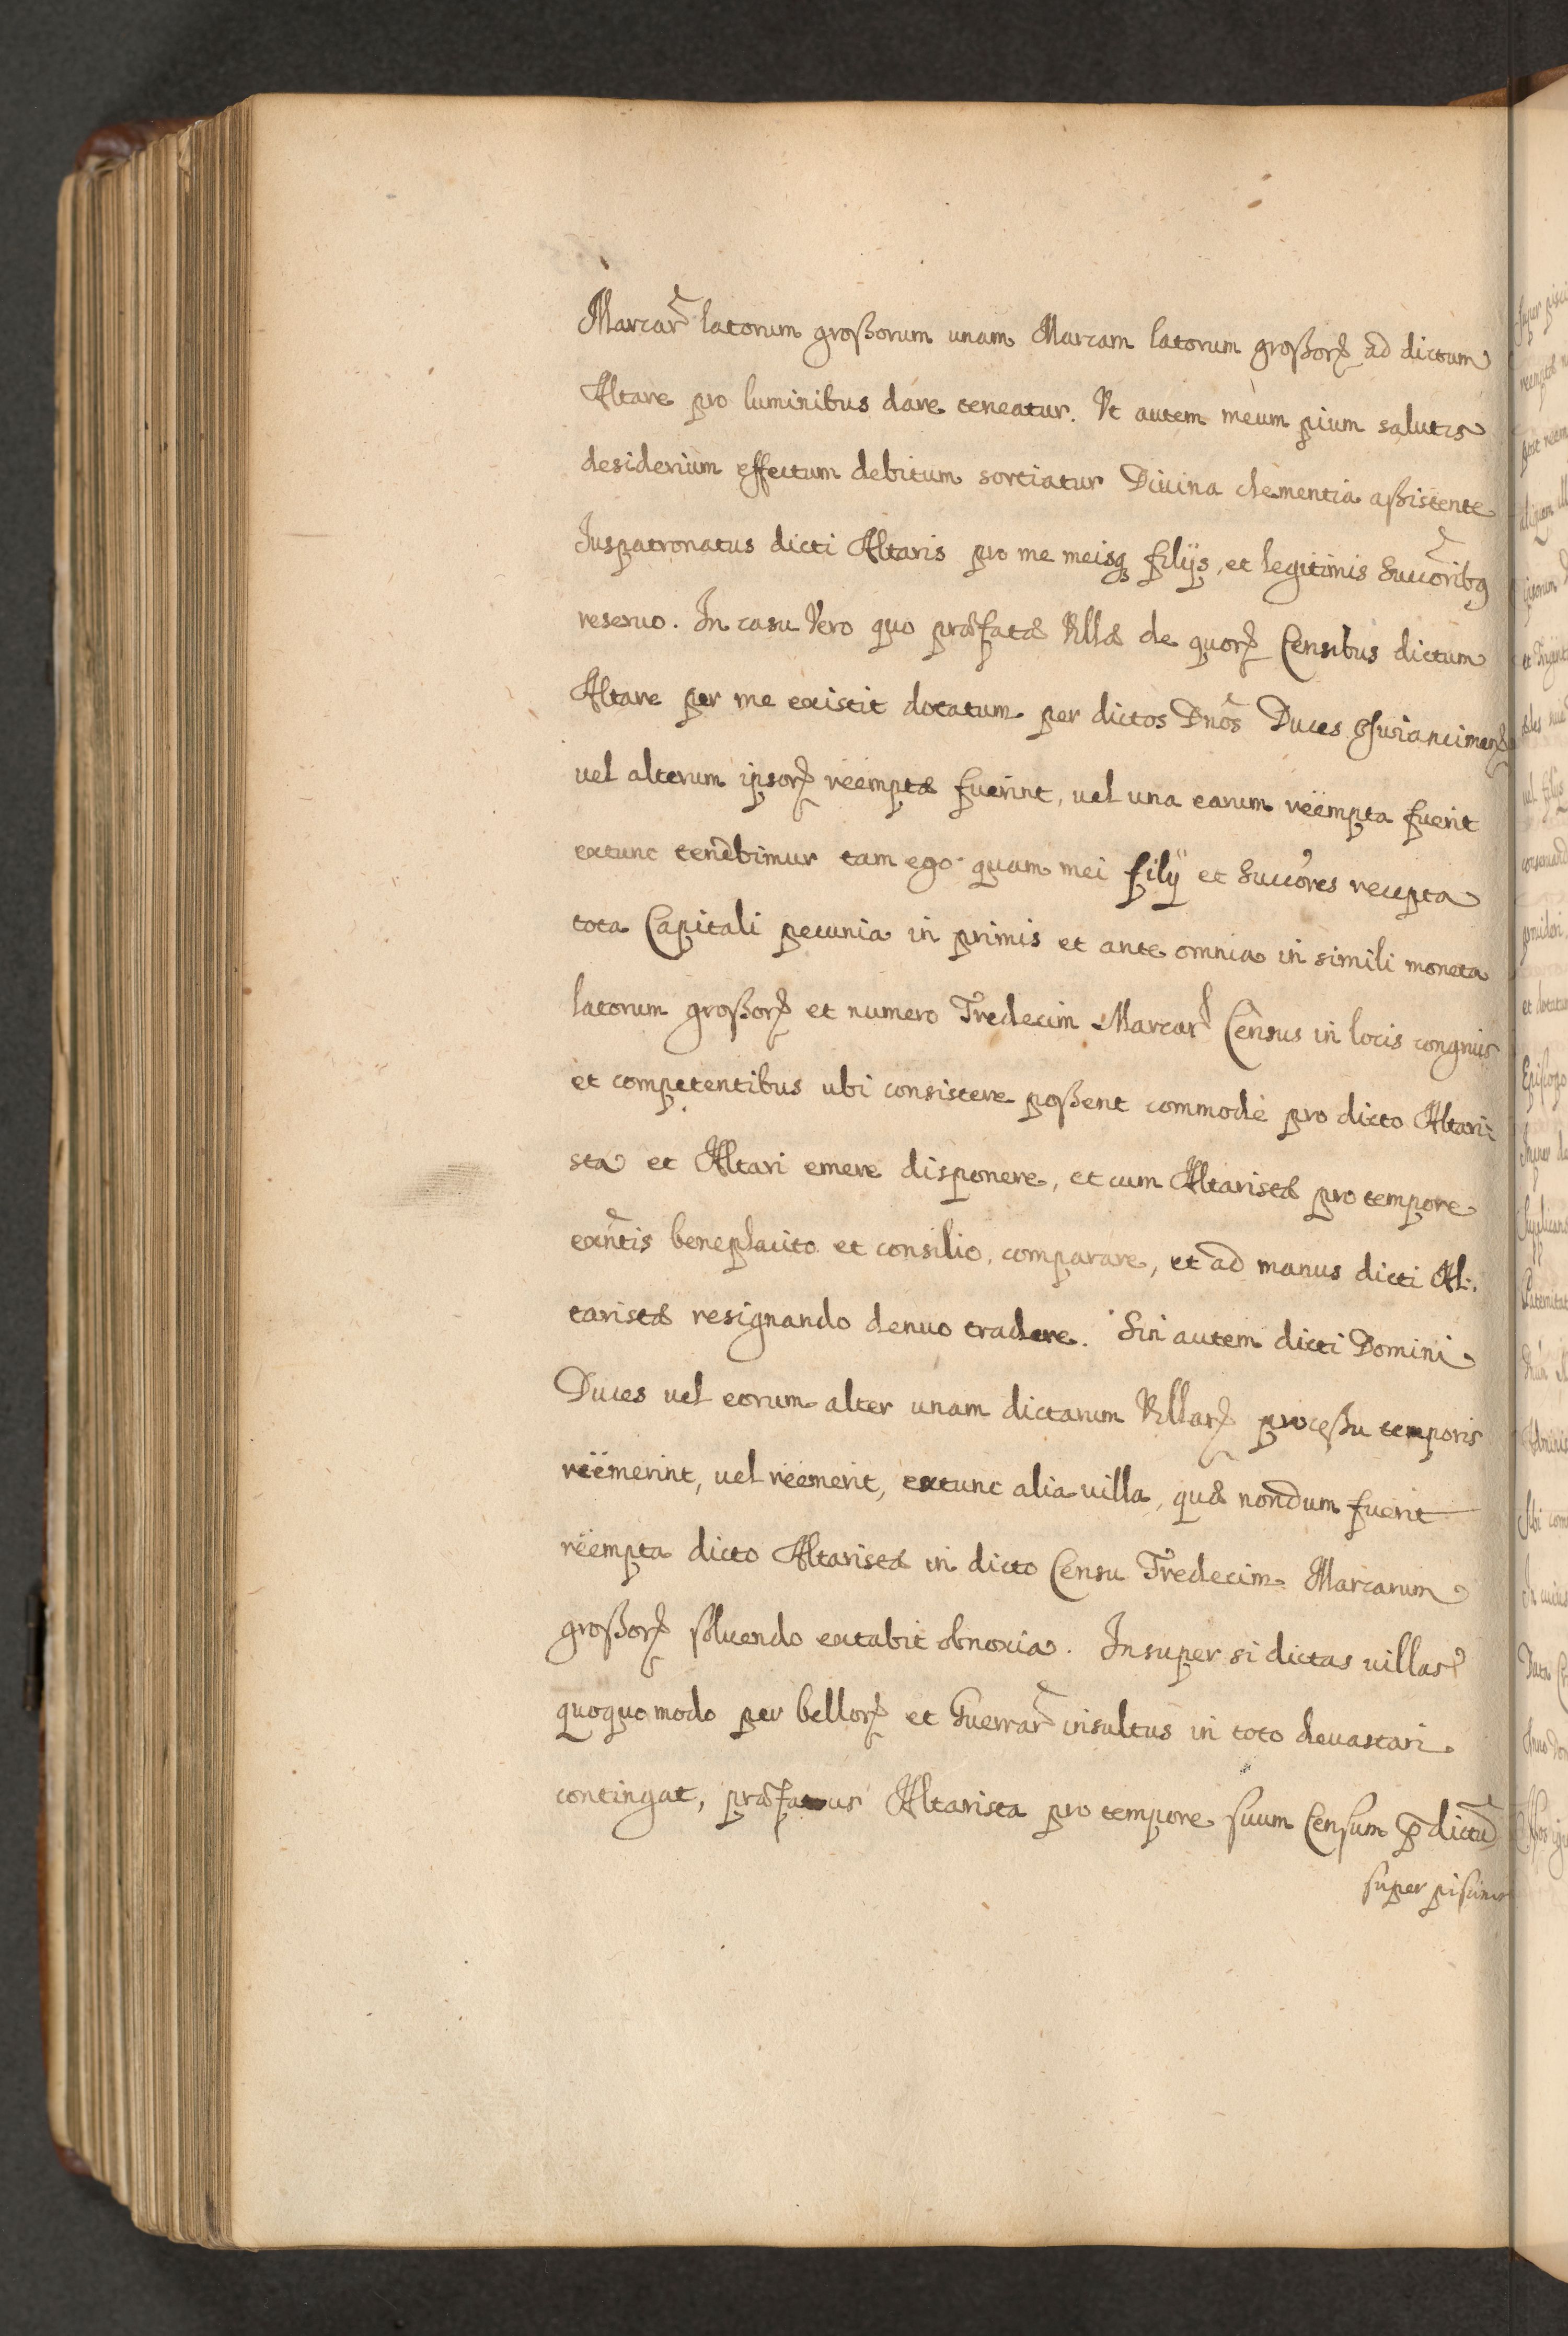 Marcar̃ latorum großorum unam Marcam latorum großorꝝ ad dictum
Altare pro luminibus dare teneatur. Vt autem meum pium salutis
desiderium effectum debitum sortiatur Diuina clementia aßistente
Iuspatronatus dicti Altaris pro me meisqꝫ filijs, et legitimis Succõribꝯ
reseruo. In casu Vero quo præfatæ Villæ de quorꝝ Censibus dictum
Altare per me existit dotatum per dictos Dnõs Duces Osuiancimenꝭ
uel alterum ipsorꝝ reemptæ fuerint, uel una earum reëmpta fuerit
extunc tenebimur tam ego quam mei filij et Succõres recepta
tota Capitali pecunia in primis et ante omnia in simili moneta
latorum großorꝝ et numero Tredecim Marcarꝝ Census in locis congruis
et competentibus ubi consistere poßent commodè pro dicto Altari:
sta et Altari emere disponere, et cum Altaristæ pro tempore
exñtis beneplacito et consilio, comparare, et ad manus dicti Al:
taristæ resignando denuo tradere. Sin autem dicti Domini
Duces uel eorum alter unam dictarum Villarꝝ proceßu temporis
reëmerint, uel reëmerit, extunc alia uilla, quæ nondum fuerit
reëmpta dicto Altaristæ in dicto Censu Tredecim Marcarum
großorꝝ soluendo extabit obnoxia. Insuper si dictas uillas
quoquo modo per bellorꝝ et Guerrar̃ insultus in toto deuastari
contingat, præfatus Altarista pro tempore suum Censum p̄dictũ
super piscinis